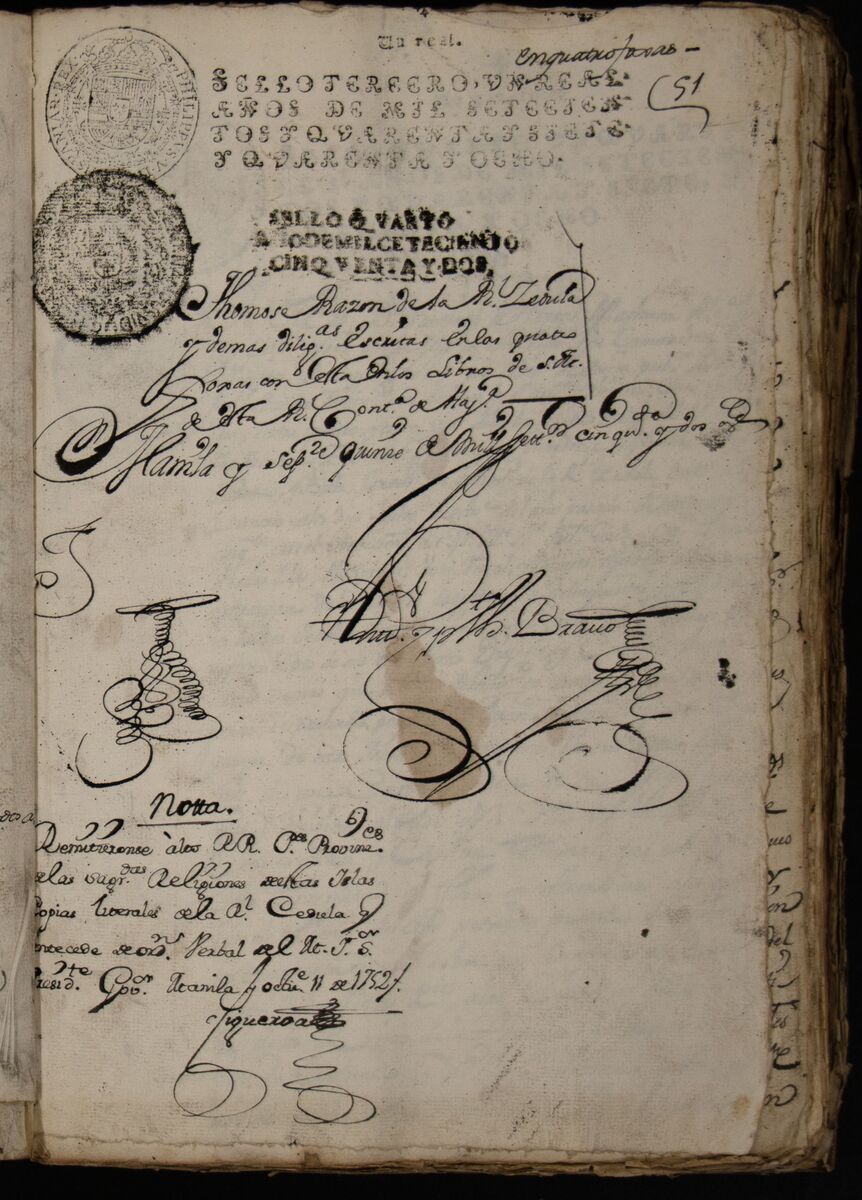 Un real.
enquatro foxas -
51
SELLO TERCERO, VN REAL
AÑOS DE MIL SETECIEN
TOS Y QVARENTA Y SIETE
Y QVARENTA Y OCHO.
PHILIPPUS V
SELLO QVARTO
AÑO DE MIL CETECIENTO
CINQVENTA Y DOS
Thomose Razon de la Rl. Zedula
y demas dilig.as Escritas en las quatro
foxas con esta en los Libros de s. M.
de esta Rl. Cont.a de Haz.da
Manila y sep.re quinze de mill sett.s cinq.ta y dos
Bravo
Notta.
Remitieronse à los RR. P.es Provinc.es
de las sagr.das Religiones de estas Islas
Copias literales de la Rl. Cedula q
antecede de ordn. Verbal del M. I. S.or
Presid.te Gov.or Manila y octu.e 11 de 1752
Figueroa